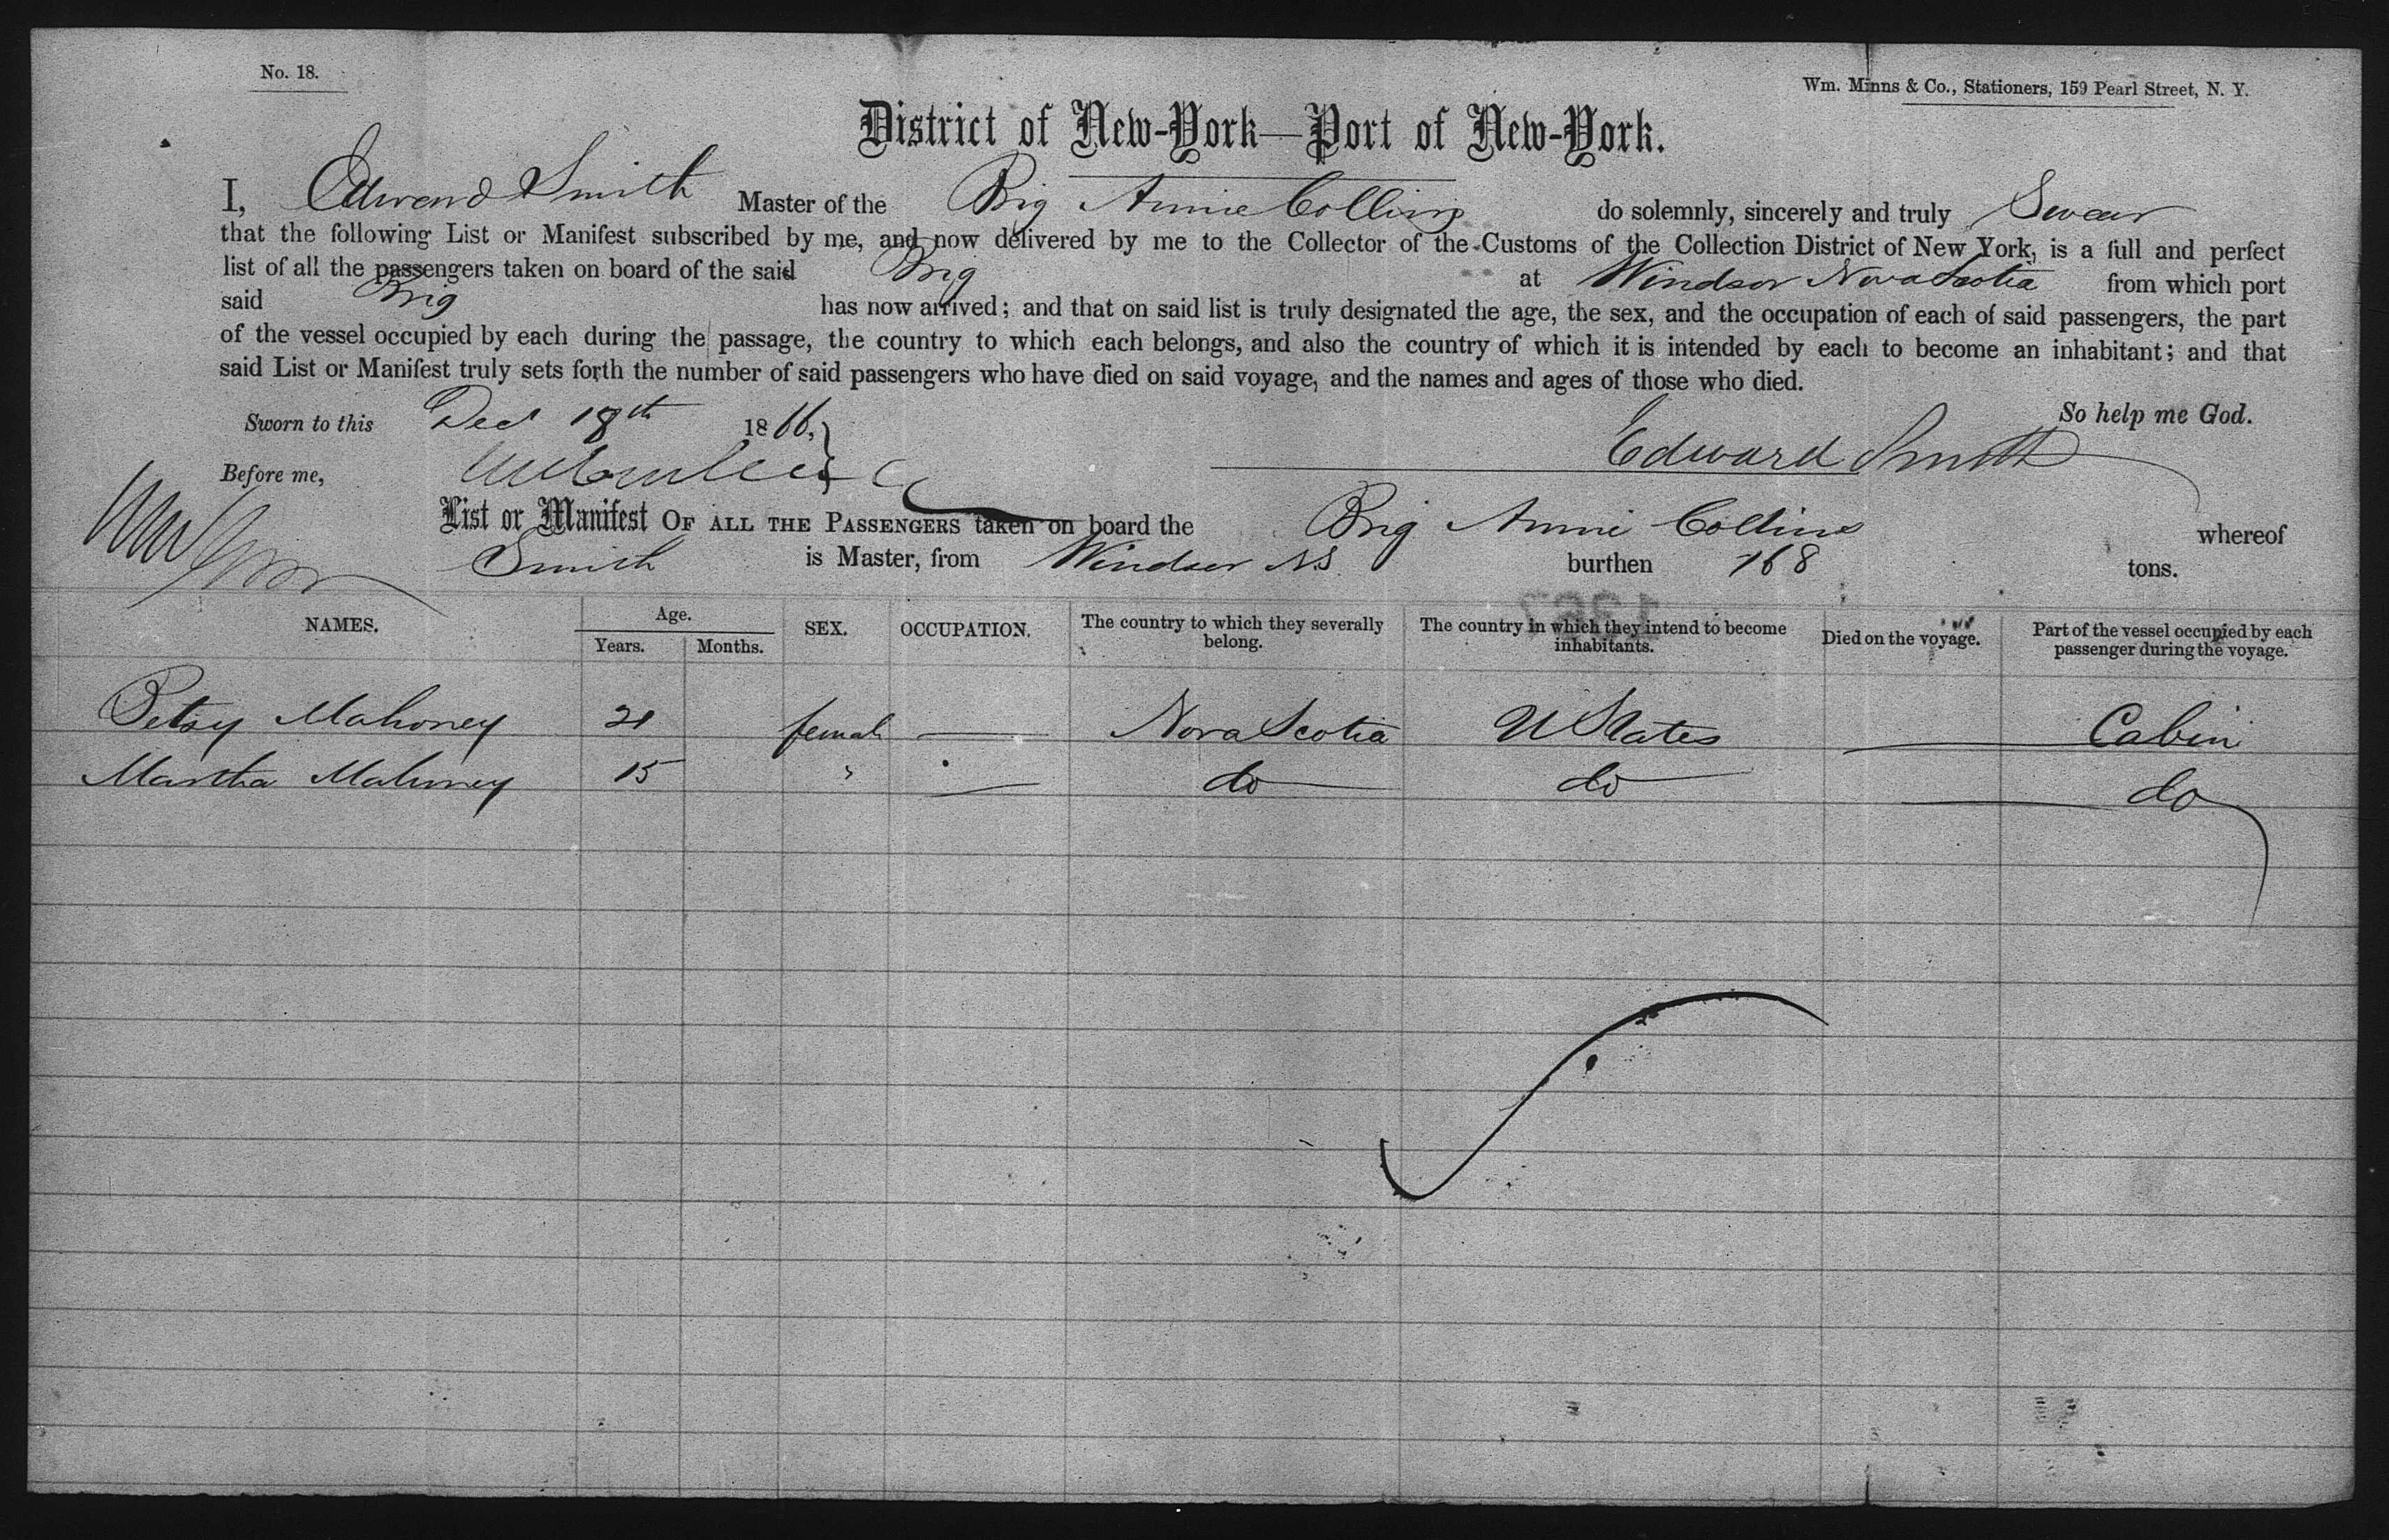 No. 18.
Wm. Minns & Co., Stationers, 159 Pearl Street, N. Y.
District of New-York—Port of New-York.
I, Edward Smith Master of the Brig Annie Collins do solemnly, sincerely and truly Swear
that the following List or Manifest subscribed by me, and now delivered by me to the Collector of the Customs of the Collection District of New York, is a full and perfect
list of all the passengers taken on board of the said Brig at Windsor Nova Scotia from which port
said Brig has now arrived; and that on said list is truly designated the age, the sex, and the occupation of each of said passengers, the part
of the vessel occupied by each during the passage, the country to which each belongs, and also the country of which it is intended by each to become an inhabitant; and that
said List or Manifest truly sets forth the number of said passengers who have died on said voyage, and the names and ages of those who died.
So help me God.
Sworn to this Dec 18th 1866,
Edward Smith
Before me,
List or Manifest OF ALL THE PASSENGERS taken on board the Brig Annie Collins whereof
Smith is Master, from Windsor N.S. burthen 168 tons.
NAMES. Age. Years. Months. SEX. OCCUPATION. The country to which they severally belong. The country in which they intend to become inhabitants. Died on the voyage. Part of the vessel occupied by each passenger during the voyage.
Betsy Mahoney 21 female — Nova Scotia U States — Cabin
Martha Mahoney 15 " — do do — do